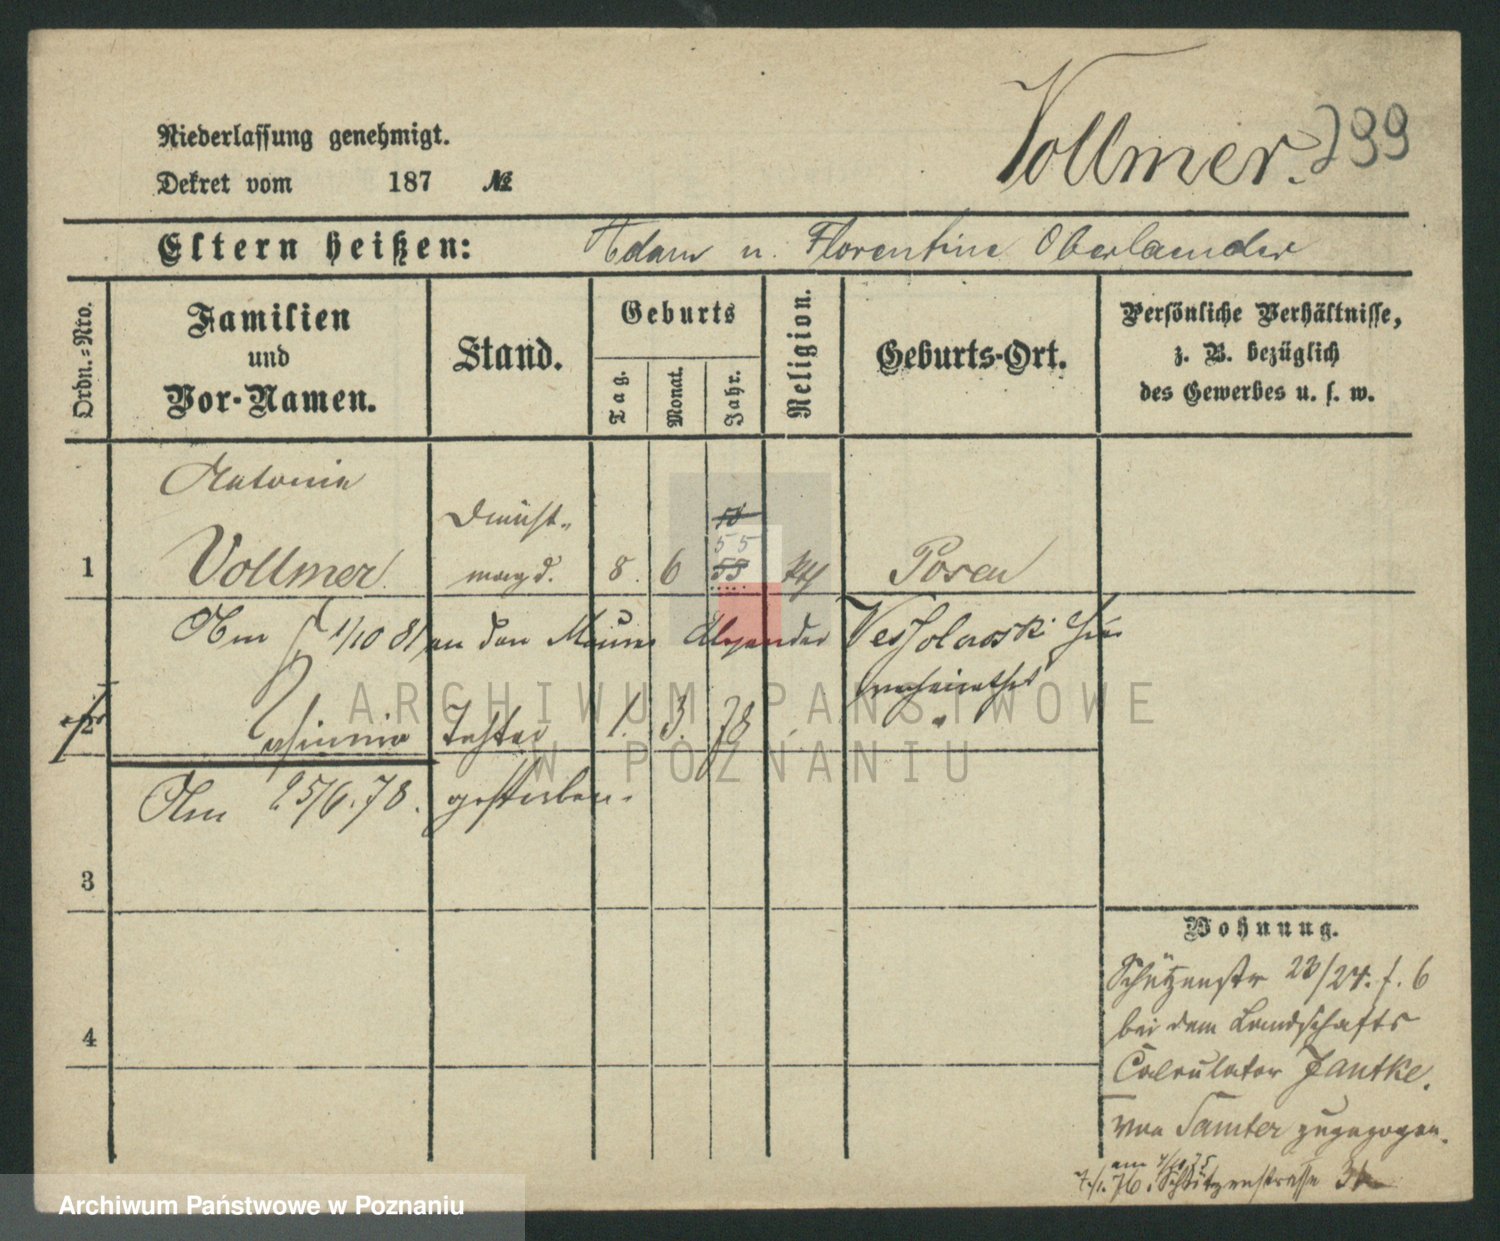 Vollmer. 299
Niederlassung genehmigt.
Dekret vom 187 №
Eltern heißen: Adam u. Florentine Oberlaender
Ordn.=Nro.
Familien
und
Vor-Namen.
Stand.
Geburts
Tag.
Monat.
Jahr.
Religion.
Geburts-Ort.
Persönliche Verhältnisse,
z. B. bezüglich
des Gewerbes u. s. w.
Antonie
Dienst-
55
1 Vollmer magd. 8. 6 55 kth Posen
Am 1/10 81 an den Maurer Alexander hier
verheirathet
2 Tochter 1. 3. 78
Am 25/6.78. gestorben.
3
4
Wohnung.
Schützenstr 23/24. f. 6
bei dem Landschafts
Calculator Jantke.
von Samter zugezogen.
am 7/10 75
7./1. 76. Schützenstrasse 31
ARCHIWUM PAŃSTWOWE
W POZNANIU
Archiwum Państwowe w Poznaniu